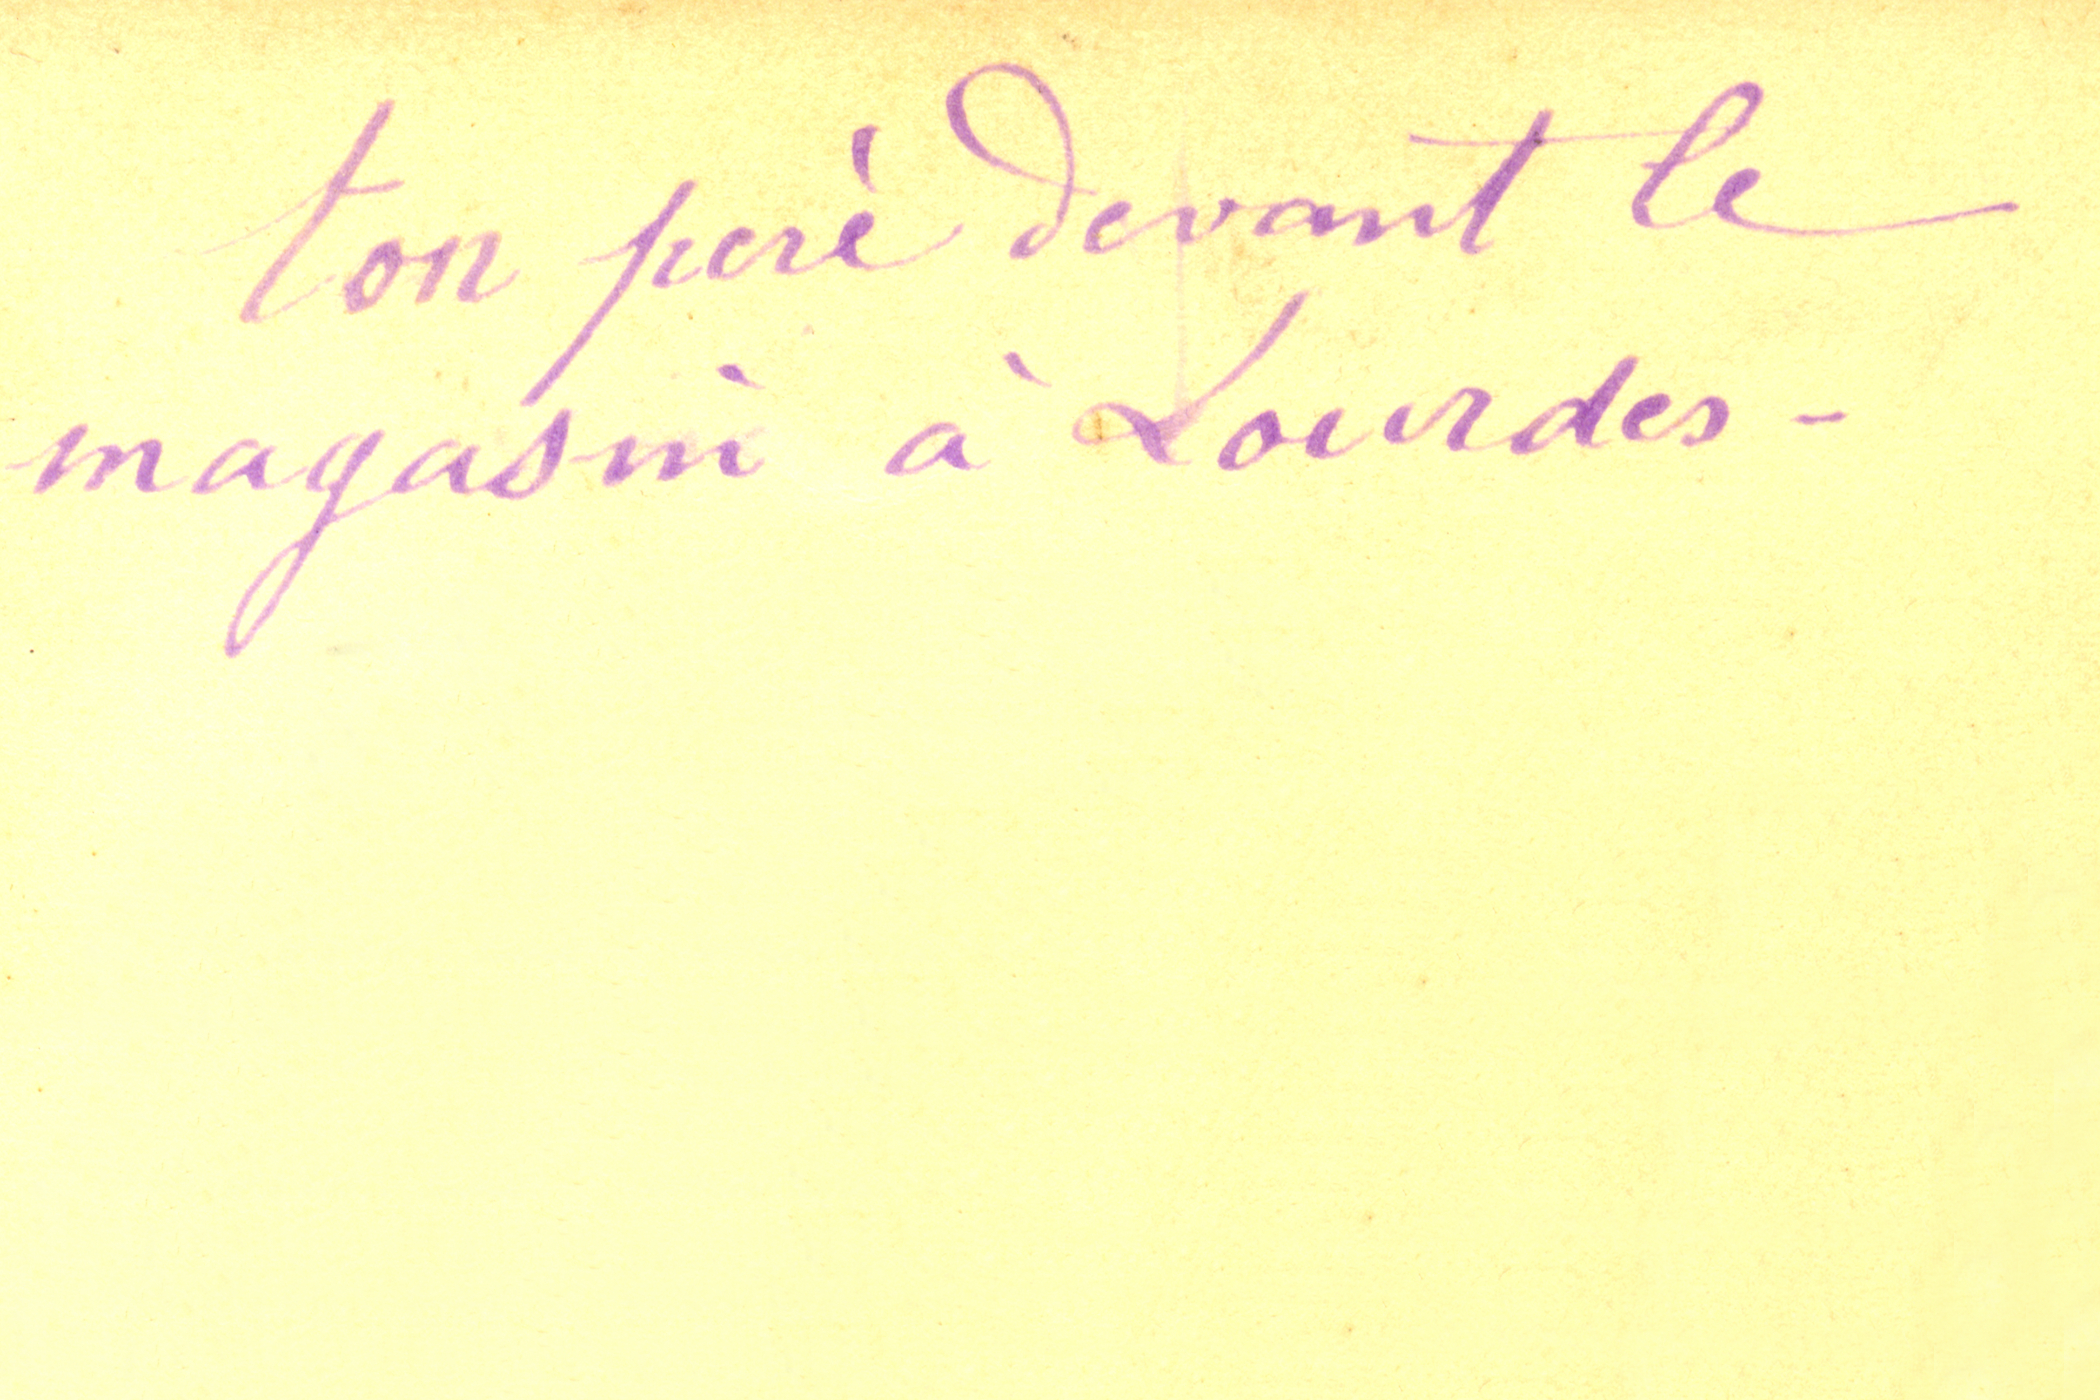 ton perè devant le
magasin à Lourdes -